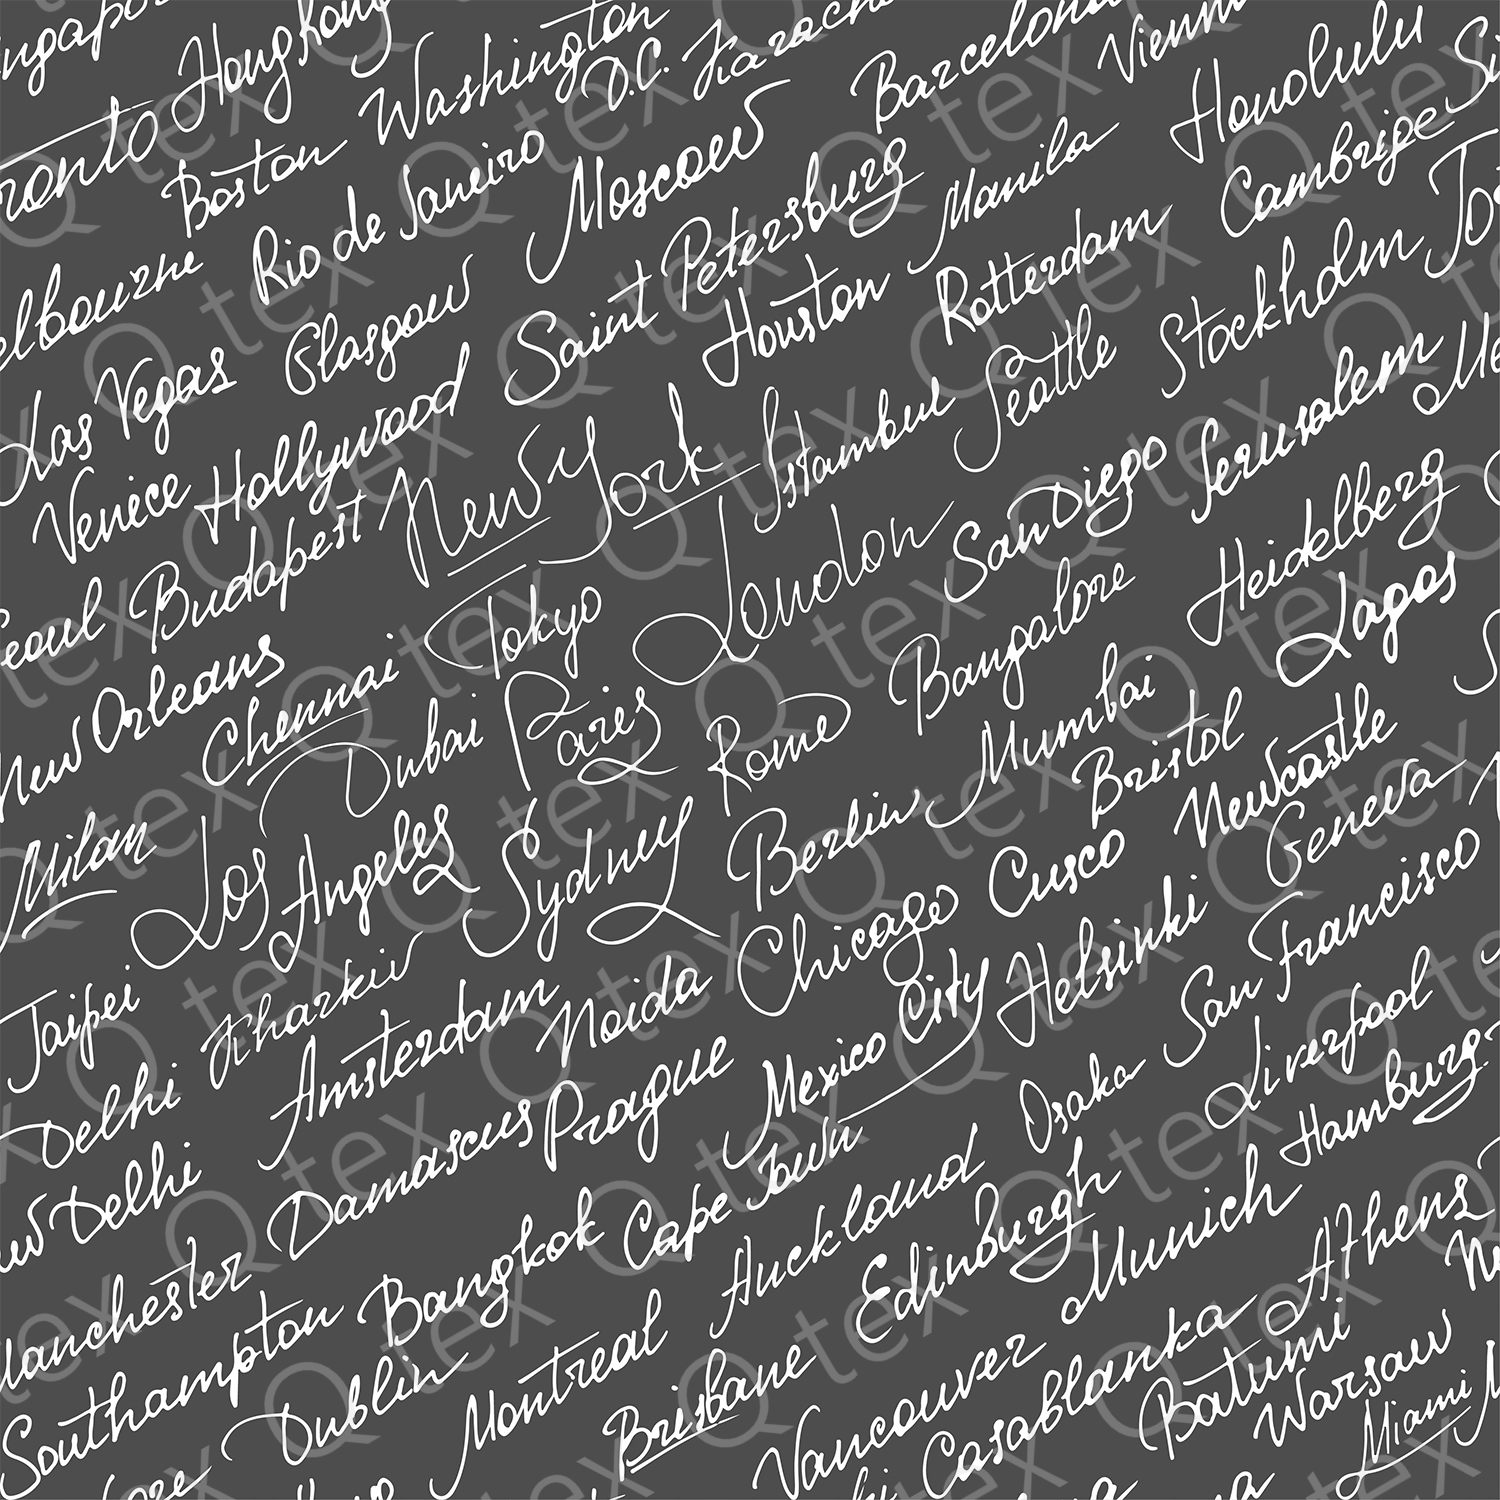 Hong Kong
Washington D.C. Karachi
Barcelona
Vienna
Toronto
Boston
Rio de Janeiro
Moscow
Honolulu
Melbourne
Glasgow
Saint Petersburg
Manila
Cambrige
Las Vegas
Hollywood
Houston
Rotterdam
Stockholm
Venice
Budapest
New York
Istambul
Seattle
Jerusalem
Seoul
Tokyo
London
San Diego
Heidelberg
New Orleans
Chennai
Dubai
Paries
Rome
Bangalore
Lagos
Milan
Los Angeles
Sydney
Berlin
Mumbai
Bristol
Newcastle
Geneva
Taipei
Kharkiv
Amsterdam
Noida
Chicago
Cusco
Helsinki
San Francisco
Delhi
Damascus
Prague
Mexico City
Osaka
Liverpool
New Delhi
Bangkok
Cape Town
Auckland
Edinburgh
Hamburg
Manchester
Southampton
Dublin
Montreal
Brisbane
Vancouver
Munich
Athens
Casablanka
Batumi
Warsaw
Miami
Q tex